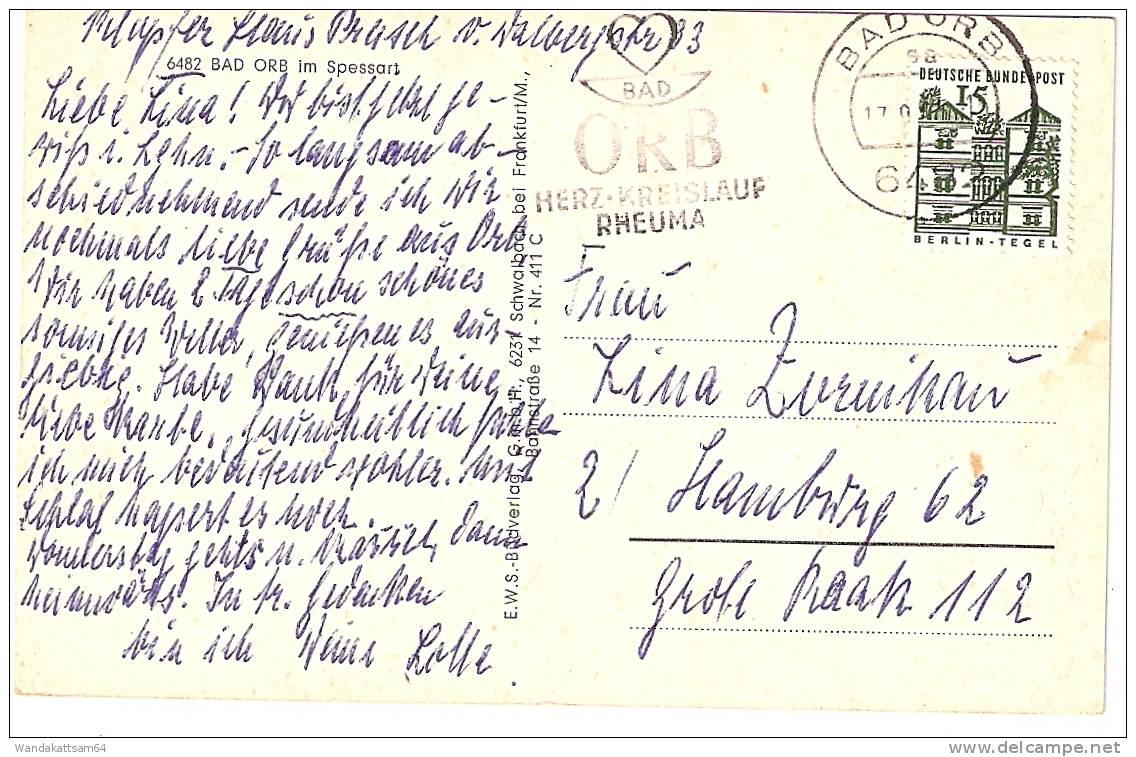 Klapper Haus Preisel v. Dalbergstr 33
6482 BAD ORB im Spessart
Liebe Lina! Du bist jetzt ge-
wiß i. Lehn.- So langsam ab-
schiednehmend sende ich Dir
nochmals liebe Grüße aus Orb
Wir haben 2 Tage schon schönes
sonniges Wetter, genießen es aus-
giebig. Habe Dank für Deine
liebe Karte. Gesundheitlich fühle
ich mich bedeutend wohler. Mit
Schlaf hapert es noch.
Donnerstag gehts n. Kassel, dann
heimwärts. In tr. Gedenken
bin ich Deine Lotte.
E.W.S.-Bildverlag G.m.b.H., 6231 Schwalbach bei Frankfurt/M.,
Bahnstraße 14 - Nr. 411 C
BAD
ORB
HERZ-KREISLAUF
RHEUMA
BAD ORB
sa
17.
6482
DEUTSCHE BUNDESPOST
15
BERLIN-TEGEL
Frau
Lina Zornikau
2/ Hamburg 62
Große Raak 112
Wandakattsam64
www.delcampe.net